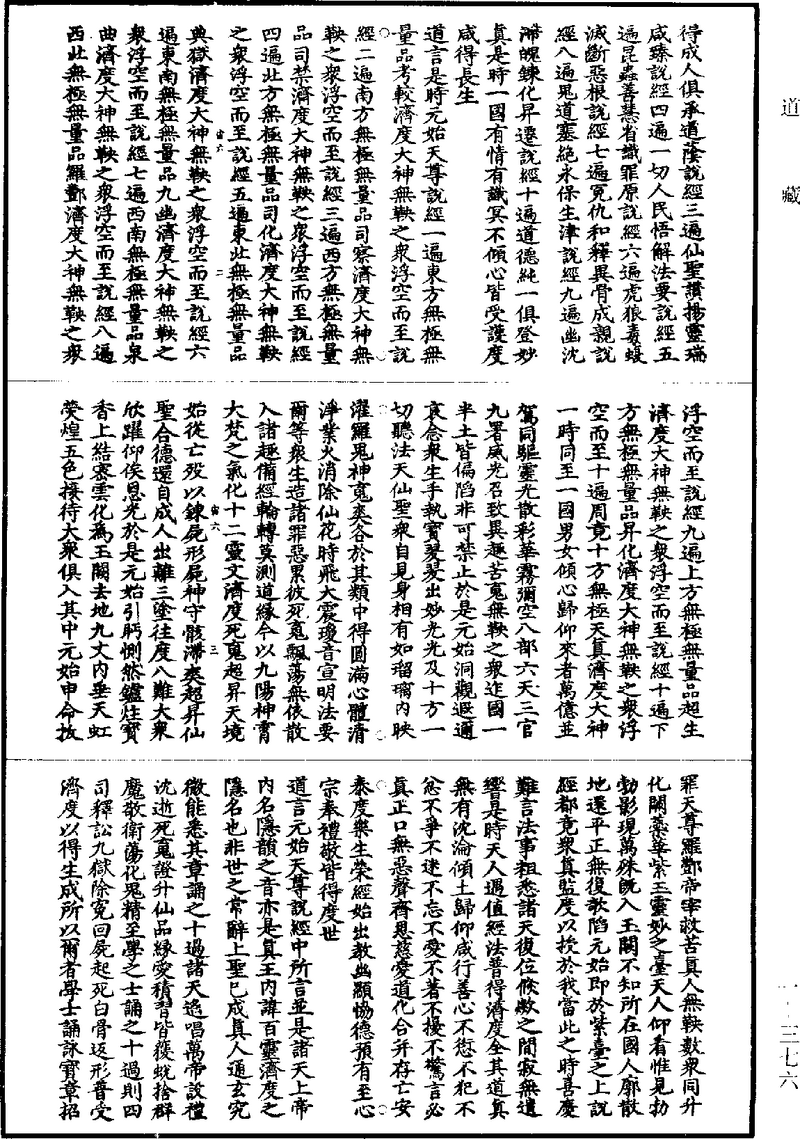 道藏
得成人俱承道蔭說經三遍仙聖讚揚靈瑞
咸臻說經四遍一切人民悟解法要說經五
遍昆蟲善慧省識罪原說經六遍虎狼毒蝮
滅斷惡根說經七遍冤仇和釋異骨成親說
經八遍鬼道塞絕永保生津說經九遍幽沈
滯魄鍊化昇遷說經十遍道德純一俱登妙
真是時一國有情有識冥不傾心皆受護度
咸得長生
道言是時元始天尊說經一遍東方無極無
量品考較濟度大神無鞅之眾浮空而至說
經二遍南方無極無量品司察濟度大神無
鞅之眾浮空而至說經三遍西方無極無量
品司禁濟度大神無鞅之眾浮空而至說經
四遍北方無極無量品司化濟度大神無鞅
之眾浮空而至說經五遍東北無極無量品
典獄濟度大神無鞅之眾浮空而至說經六
遍東南無極無量品九幽濟度大神無鞅之
眾浮空而至說經七遍西南無極無量品泉
曲濟度大神無鞅之眾浮空而至說經八遍
西北無極無量品羅酆濟度大神無鞅之眾
浮空而至說經九遍上方無極無量品超生
濟度大神無鞅之眾浮空而至說經十遍下
方無極無量品昇化濟度大神無鞅之眾浮
空而至十遍周竟十方無極天真濟度大神
一時同至一國男女傾心歸仰來者萬億並
駕同驅靈光散彩華霧彌空八部六天三官
九署威光召致異趣苦魂無鞅之眾迮國一
半土皆偏陷非可禁止於是元始洞觀遐邇
哀念眾生手執寶琴琴出妙光光及十方一
切聽法天仙聖眾自見身相有如瑠璃內映
濯羅鬼神寃爽各於其類中得圓滿心體清
淨業火消除仙花時飛大震瓊音宣明法要
爾等眾生造諸罪惡累彼死寃飄蕩無依散
入諸趣備經輪轉莫測道緣今以九陽神霄
大梵之氣化十二靈文濟度死寃超昇天境
始從亡歿以鍊屍形屍神守骸滯爽超昇仙
聖合德還自成人出離三塗往度八難大眾
欣躍仰俟恩光於是元始引眄惻然爐炷寶
香上結密雲化為玉闕去地九丈內垂天虹
熒煌五色接待大眾俱入其中元始申命救
罪天尊羅酆帝宰救苦真人無鞅數眾同升
化闕蘂華紫玉靈妙之臺天人仰看惟見勃
勃影現萬殊既入玉闕不知所在國人廓散
地還平正無復欹陷元始即於紫臺之上說
經都竟眾真監度以授於我當此之時喜慶
難言法事粗悉諸天復位倏欻之間寂無遺
響是時天人遇值經法普得濟度全其道真
無有沈淪傾土歸仰咸行善心不愆不犯不
忿不爭不迷不忘不愛不著不擾不驚言必
真正口無惡聲齊恩慈愛道化合并存亡安
泰度樂生榮經始出教幽顯協德預有至心
宗奉禮敬皆得度世
道言元始天尊說經中所言並是諸天上帝
內名隱韻之音亦是真王內諱百靈濟度之
隱名也非世之常辭上聖已成真人通玄究
微能悉其章誦之十過諸天遙唱萬帝設禮
沈逝死寃證升仙品緣愛積習皆獲蛻捨群
魔敬衛蕩化鬼精至學之士誦之十過則四
司釋訟九獄除冤回屍起死白骨返形普受
濟度以得生成所以爾者學士誦詠寶章招
宙六
二
宙六
三
一·三七六